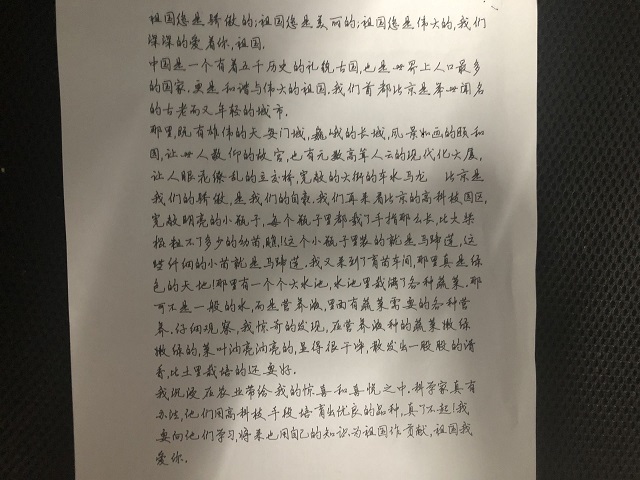 祖国您是骄傲的;祖国您是美丽的;祖国您是伟大的,我们
深深的爱着你,祖国.
中国是一个有着五千历史的礼貌古国,也是世界上人口最多
的国家.更是和谐与伟大的祖国.我们首都北京是举世闻名
的古老而又年轻的城市.
那里,既有雄伟的天安门城,巍峨的长城,风景如画的颐和
园,让世人敬仰的故宫,也有无数高耸入云的现代化大厦,
让人眼花缭乱的立交桥,宽敞的大街的车水马龙 北京是
我们的骄傲,是我们的自豪.我们再来看北京的高科技园区,
宽敞明亮的小瓶子,每个瓶子里都栽了手指那么长,比火柴
棍粗不了多少的幼苗,瞧!这个小瓶子里装的就是马蹄莲,这
些纤细的小苗就是马蹄莲.我又来到了育苗车间,那里真是绿
色的天地!那里有一个个大水池,水池里栽满了各种蔬菜.那
可不是一般的水,而是营养液,里面有蔬菜需要的各种营
养.仔细观察,我惊奇的发现,在营养液种的蔬菜嫩绿
嫩绿的,菜叶油亮油亮的,显得很干净,散发出一股股的清
香,比土里栽培的还要好.
我沉浸在农业带给我的惊喜和喜悦之中.科学家真有
办法,他们用高科技手段培育出优良的品种,真了不起!我
要向他们学习,将来也用自己的知识为祖国作贡献,祖国我
爱你.